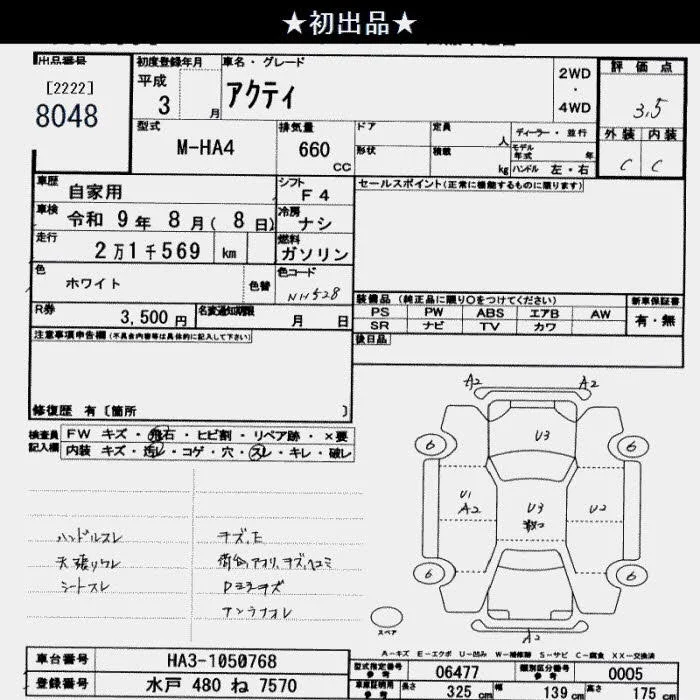 ★初出品★
出品番号
[2222]
8048
初度登録年月
平成
3 月
車名・グレード
アクティ
2WD
・
4WD
評価点
3.5
外装 内装
C C
型式
M-HA4
排気量
660
CC
ドア
形状
定員
人
積載
kg
ディーラー・並行
モデル年式 年
ハンドル 左・右
車歴
自家用
シフト
F4
セールスポイント(正常に機能するものに限ります)
車検
令和 9年 8月( 8日)
冷房
ナシ
走行
2万1千569 km
燃料
ガソリン
色
ホワイト
色替
色コード
NH528
装備品 (純正品に限り○をつけてください)
新車保証書
PS PW ABS エアB AW
SR ナビ TV カワ
有・無
R券
3,500 円
名変通知期限
月 日
後日品
注意事項申告欄(不具合内容等は具体的に記入して下さい)
修復歴 有〔箇所 〕
検査員
記入欄
FW キズ・飛石・ヒビ割・リペア跡・×要
内装 キズ・汚レ・コゲ・穴・スレ・キレ・破レ
A2 A2
U3
6 6
U1
A2
U3
U2
6 6
A2
ハンドルスレ
天張りワレ
シートスレ
キズ、E
荷台、アオリ、キズ、ヘコミ
Dミラキズ
スペア
A-キズ E-エクボ U-凹み W-補修跡 S-サビ C-腐食 XX-交換済
車台番号
HA3-1050768
型式指定番号
参考
06477
類別区分番号
参考
0005
登録番号
水戸 480 ね 7570
車庫証明用
参考
長さ
325 cm
幅
139 cm
高さ
175 cm